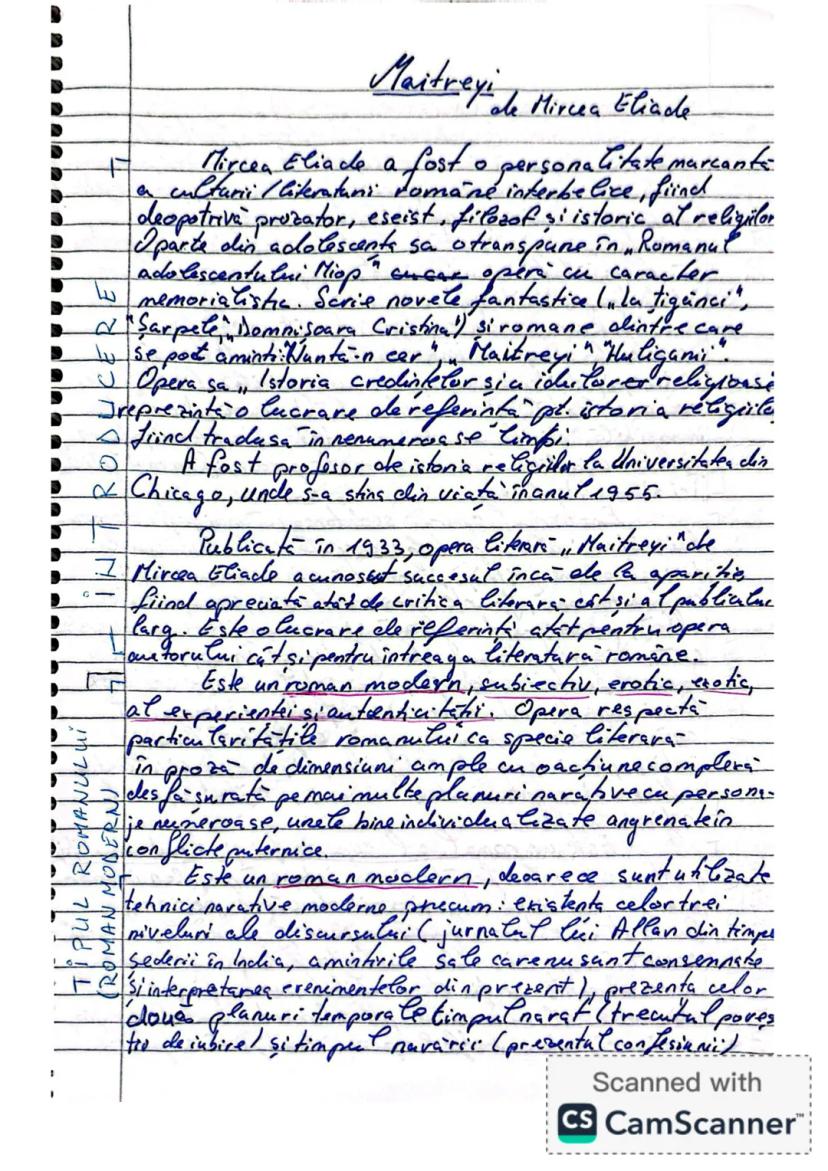 Maitreyi
de Mircea Eliade
Mircea Eliade a fost o personalitate marcantă
a culturii/literaturii române interbelice, fiind
deopotrivă prozator, eseist, filozof și istoric al religiilor
O parte din adolescența sa o transpune în „Romanul
adolescentului Miop" operă cu caracter
memorialistic. Scrie novele fantastice („La țigănci",
"Șarpele", „Domnișoara Cristina") și romane dintre care
se pot aminti: „Nuntă-n cer", „Maitreyi" "Huliganii".
Opera sa „Istoria credințelor și a ideilor religioase
reprezintă o lucrare de referință pt. istoria religiilo
fiind tradusă în nenumeroase limbi.
A fost profesor de istoria religiilor la Universitatea din
Chicago, unde s-a stins din viață în anul 1955.
Publicată în 1933, opera literară „Maitreyi" de
Mircea Eliade a cunoscut succesul încă de la apariție
fiind apreciată atât de critica literară cât și al publicului
larg. Este o lucrare de referință atât pentru opera
autorului cât și pentru întreaga literatură române.
Este un roman modern, subiectiv, erotic, exotic,
al experienței și autenticității. Opera respectă
particularitățile romanului ca specie literară
în proză de dimensiuni ample cu o acțiune complexă
desfășurată pe mai multe planuri narative cu persona-
je numeroase, unele bine individualizate angrenate în
conflicte puternice.
Este un roman modern, deoarece sunt utilizate
tehnici narative moderne precum: existența celor trei
niveluri ale discursului (jurnalul lui Allan din timpu
șederii în India, amintirile sale care nu sunt consemnate
și interpretarea evenimentelor din prezent), prezența celor
două planuri temporale timpul narat (trecutul poves
tii de iubire) și timpul narării (prezentul confesiunii)
I
II - INTRODUCERE
TIPUL ROMANULUI
(ROMAN MODERN)
Scanned with
CS CamScanner™